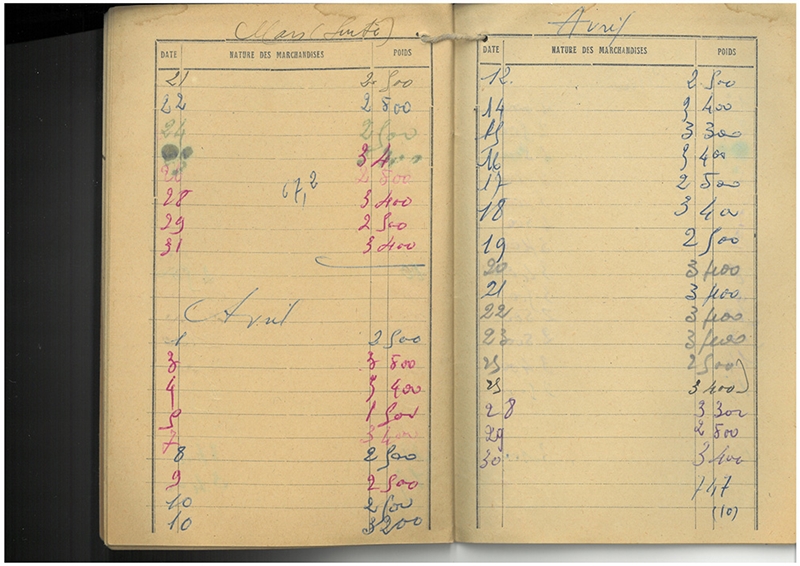 Mars (Suite)
DATE NATURE DES MARCHANDISES POIDS
21 2 500
22 2 800
24 2 500
3 400
2 800
67,2
28 3 400
29 2 500
31 3 400
Avril
1 2 500
3 3 800
4 3 400
5 1 500
7 3 400
8 2 500
9 2 500
10 2 500
10 3 200
Avril
DATE NATURE DES MARCHANDISES POIDS
12. 2 500
14 3 400
15 3 300
16 3 400
17 2 500
18 3 400
19 2 500
20 3 400
21 3 400
22 3 400
23 3 400
25 2 500
25 3 400
28 3 300
29 2 800
30 3 400
747
(10)